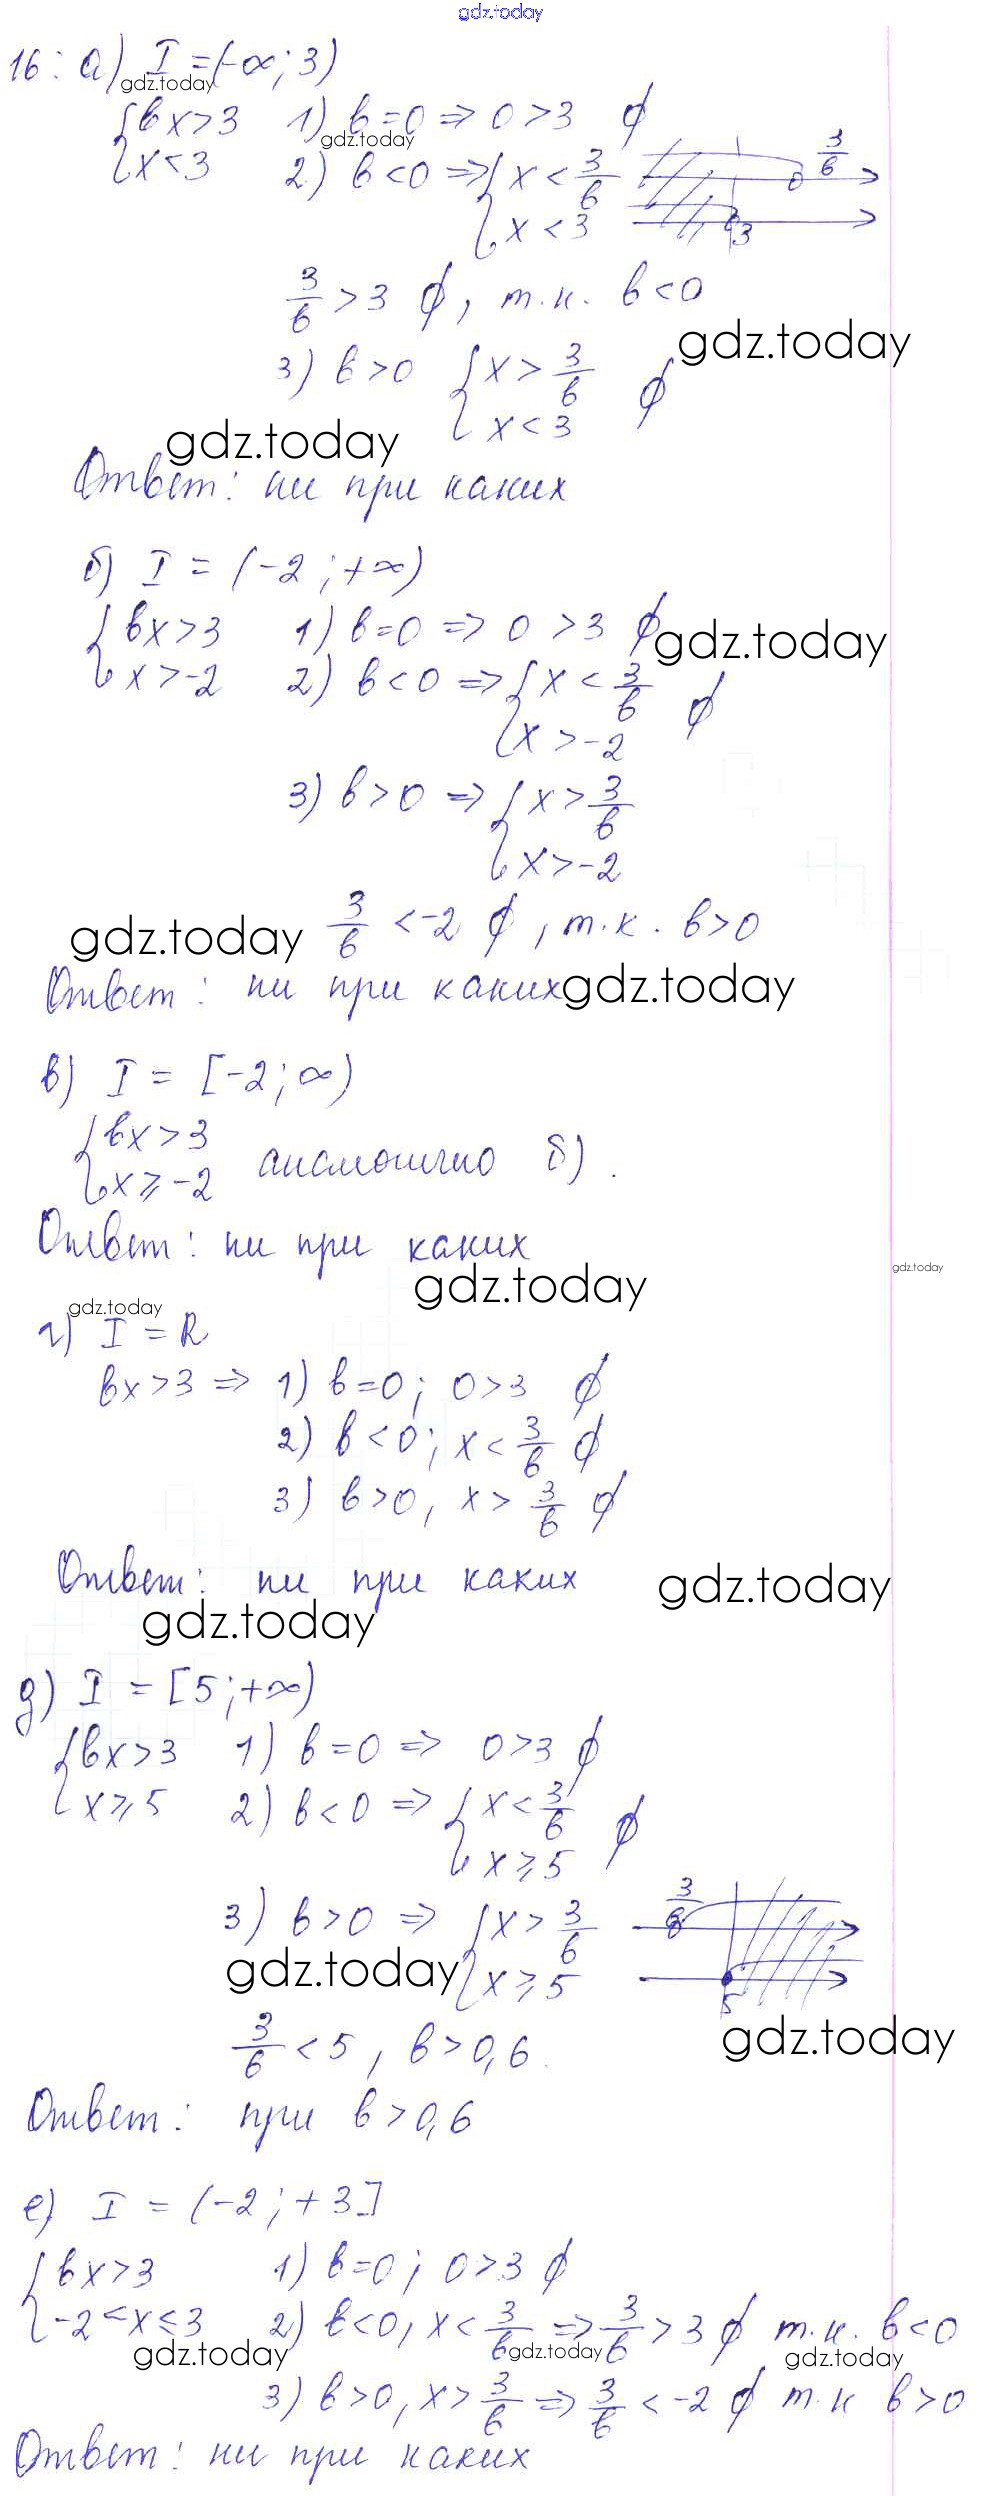 gdz.today
16: а) I = (-∞; 3)
gdz.today
{ bx > 3   1) b = 0 => 0 > 3 ∅
gdz.today
{ x < 3   2) b < 0 => { x < 3/b   3/b
{ x < 3   3
3/b > 3 ∅, т.к. b < 0
gdz.today
3) b > 0 { x > 3/b ∅
{ x < 3
gdz.today
Ответ: ни при каких
б) I = (-2; +∞)
{ bx > 3   1) b = 0 => 0 > 3 ∅
gdz.today
{ x > -2   2) b < 0 => { x < 3/b ∅
{ x > -2
3) b > 0 => { x > 3/b
{ x > -2
gdz.today
3/b < -2 ∅, т.к. b > 0
Ответ: ни при каких
gdz.today
в) I = [-2; ∞)
{ bx > 3
{ x ⩾ -2   аналогично б).
Ответ: ни при каких
gdz.today
gdz.today
gdz.today
г) I = R
bx > 3 => 1) b = 0; 0 > 3 ∅
2) b < 0; x < 3/b ∅
3) b > 0, x > 3/b ∅
Ответ: ни при каких
gdz.today
gdz.today
д) I = [5; +∞)
{ bx > 3   1) b = 0 => 0 > 3 ∅
{ x ⩾ 5   2) b < 0 => { x < 3/b ∅
{ x ⩾ 5
3) b > 0 => { x > 3/b   3/b
gdz.today
{ x ⩾ 5   5
3/b < 5, b > 0,6.
gdz.today
Ответ: при b > 0,6
е) I = (-2; +3]
{ bx > 3   1) b = 0; 0 > 3 ∅
{ -2 < x ≤ 3   2) b < 0, x < 3/b => 3/b > 3 ∅ т.к. b < 0
gdz.today
gdz.today
gdz.today
3) b > 0, x > 3/b => 3/b < -2 ∅ т.к b > 0
Ответ: ни при каких